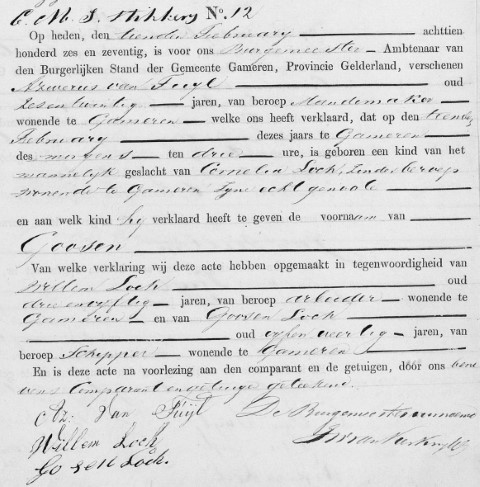 No. 12
Op heden, den tienden February achttien
honderd zes en zeventig, is voor ons Burgemeester Ambtenaar van
den Burgerlijken Stand der Gemeente Gameren, Provincie Gelderland, verschenen
van Tuijl oud
zesentwintig jaren, van beroep Mandemaker
wonende te Gameren welke ons heeft verklaard, dat op den tienden
February dezes jaars te Gameren
des morgens ten drie ure, is geboren een kind van het
mannelijk geslacht van Cornelia Lock, zonder beroep
wonende te Gameren zijne echtgenoote
en aan welk kind hij verklaard heeft te geven de voornaam van
Goosen
Van welke verklaring wij deze acte hebben opgemaakt in tegenwoordigheid van
Willem Lock oud
drieenvyftig jaren, van beroep arbeider wonende te
Gameren en van Goosen Lock
oud jaren, van
beroep Schipper wonende te Gameren
En is deze acte na voorlezing aan den comparant en de getuigen, door ons bene
vens Comparant en getuigen geteekend.
van Tuijl
De Burgemeester voornoemd
Willem Lock
Lock.